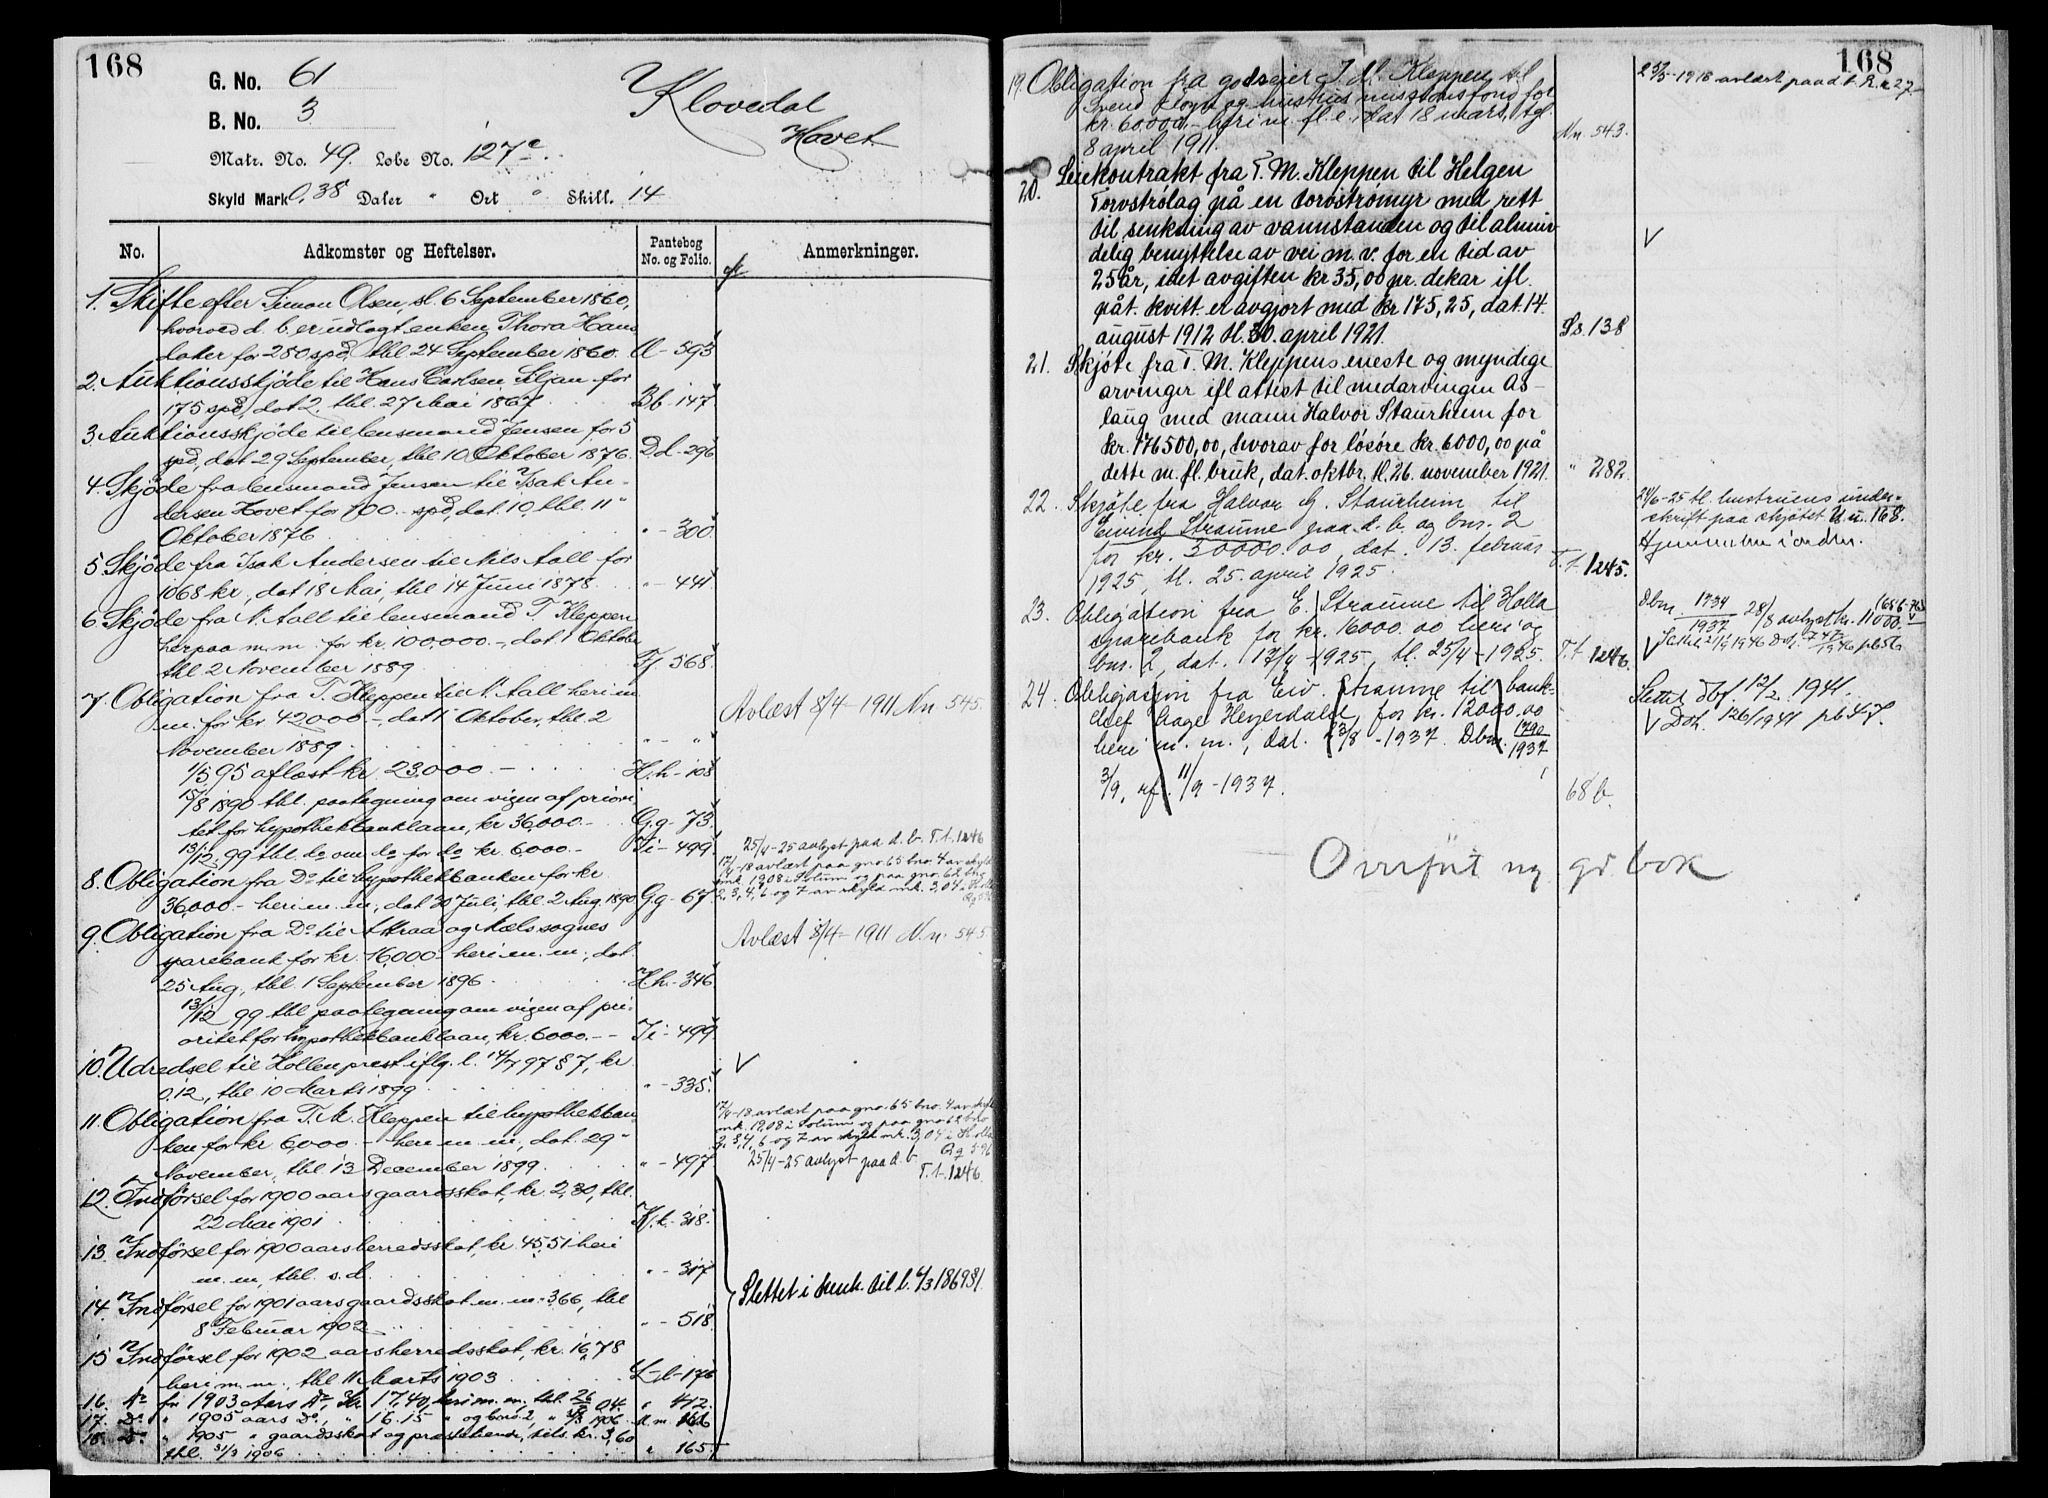 168
G. No. 61
B. No. 3
Klovedal
Hovet
Matr. No. 49. Løbe No. 127c.
Skyld Mark 0,38 Daler " Ort " Skill. 14
No. Adkomster og Heftelser. Pantebog No. og Folio. Anmerkninger.
1. Skifte efter Simon Olsen, sl. 6 September 1860,
hvorved d. b. er udlagt enken Thora Hans
dater for 250 spd. thl 24 September 1860. A - 593
2. Auktionsskjøde til Hans Carlsen Siljan for
175 spd, dat 2, thl. 27 Mai 1867. Bb - 147
3. Auktionsskjøde til lensmand Jensen for 5
spd, dat 29 September, thl 10 Oktober 1876. D.d - 296
4. Skjøde fra lensmand Jensen til Isak An-
dersen Hovet for 100.- spd, dat. 10, thl. 11"
Oktober 1876 " - 300
5. Skjøde fra Isak Andersen til Nils Aall for
1068 kr, dat 18 Mai, thl 14 Juni 1878. " - 441
6. Skjøde fra N. Aall til lensmand T. Kleppen
her paa m. m. for kr. 100,000.-, dat. 1 Oktober
thl 2 November 1889. Ff 568
7. Obligation fra T. Kleppen til N. Aall heri m
m. for kr 42000 - dat 1 Oktober, thl. 2 Avlæst 8/4 - 1911 N.n 545.
November 1889. " - "
1/5 95 aflæst kr. 23,000. - H.h - 108
15/8 1890 thl. paategning om vigen af priori
tet for hypothekbanklaan, kr 36,000.- G.g - 73.
13/12. 99 thl. do om do for do kr. 6,000.- Ii - 499
25/4-25 avlyst paa d. b. T.t. 1246
8. Obligation fra Do til hypothekbanken for kr
17/4-18 avlæst paa gno. 65 bno. 4 av skyld
mk. 19,08 i Solum og paa gno. 62 bno
2, 3, 4, 6 og 7 av skyld mk. 3,04 i Holla
36,000.- heri m. m, dat 30 Juli, thl. 2 Aug. 1890 G.g - 67.
9. Obligation fra Do til Attraa og Mæls sognes
sparebank for kr. 16,000 - heri m. m., dat. Avlæst 8/4 - 1911 N.n. 545
25 Aug, thl. 1 September 1896 H.h. - 346
13/12 99 thl paategning om vigen af pri-
oritet for hypothekbanklaan, kr. 6000.- - Ii - 499
10. Udredsel til Hollen prest iflg. l. 14/7 97 § 7, kr
0,12, thl 10 Marts 1899 " - 335.
11. Obligation fra T. M. Kleppen til hypothekban
17/4-18 avlæst paa gno. 65 bno. 4 av skyld
mk. 19,08 i Solum og paa gno. 62 bno
2, 3, 4, 6 og 7 av skyld mk. 3,04 i Holla
ken for kr 6,000.- heri m. m, dat. 29"
November, thl 13 December 1899. " - 497
25/4-25 avlyst paa d. b
T.t. 1246.
12. Indførsel for 1900 aars gaardsskat, kr. 2,30, thl.
22 Mai 1901 K.k - 318.
13. Indførsel for 1900 aars herredsskat, kr. 45,51 heri
m. m, thl. s. d. " - 317
Slettet i henh. til l. 6/3 1869 § 1.
14. Indførsel for 1901 aars gaardsskat m. m. 3,66, thl
8 Februar 1902 " - 518.
15. Indførsel for 1902 aars herredsskat, kr. 16,78
heri m. m., thl. 11 Marts 1903 L.l - 176
16. Do for 1903 Aars Do, Kr. 17,40, heri m. m., thl. 04. " 412.
17. Do. " 1905 aars Do, " 16.15 " og bno. 2, " 31/3 1906 M.m. 166
18. Do. " 1905 " gaardsskat og præstetiende, tils. kr. 3,60
thl. 31/3 1906 " 165
168
19. Obligation fra godseier T. M. Kleppen til 23/5-1918 avlæst paa d. b. R.r 27
Svend Foyn og hustrus missionsfond for
kr. 60000,- heri m. fl. e., dat 18 mars, tgl.
8 april 1911. N.n. 543.
20. Leiekontrakt fra T. M. Kleppen til Helgen
Torvstrølag på en torvstrømyr med rett
til senkning av vannstanden og til almin-
delig benyttelse av vei m. v. for en tid av
25 år, idet avgiften kr 35,00 pr. dekar ifl.
påt. kvitt. er avgjort med kr 175,25, dat. 14.
august 1912 tl. 30. april 1921. Ss. 138
21. Skjøte fra T. M. Kleppens eneste og myndige
arvinger ifl attest til medarvingen As-
laug med mann Halvor Staurheim for
kr. 176500,00, hvorav for løsøre kr. 6000,00 på
dette m. fl. bruk, dat. oktbr, tl. 26. november 1921. " 282.
22. Skjøte fra Halvor G. Staurheim til
Eivind Straume paa d. b. og bnr. 2
for kr. 30000.00, dat. 13. februar
1925, tl. 25. april 1925. T.t. 1245.
24/6-25 tl. hustruens under-
skrift paa skjøtet U.u. 168.
Hjemmelen i orden.
23. Obligation fra E. Straume til Holla
sparebank for kr. 16000.00 heri og
bnr. 2, dat. 17/4-1925, tl. 25/4-1925. T.t. 1246.
Dbn. 1734/1937 28/8 avlyst kr. 11000.-
24. Obligasjon fra Eiv. Straume til bank-
chef Hage Heyerdahl, for kr. 12000.00
heri m. m., dat. 23/8 - 1937. Dbn. 1790/1937
3/9, rf. 11/9 - 1937. 68 b.
Slettet dbf. 12/2 1941.
Dok. 126/1941 pb 47.
Overført ny gr bok